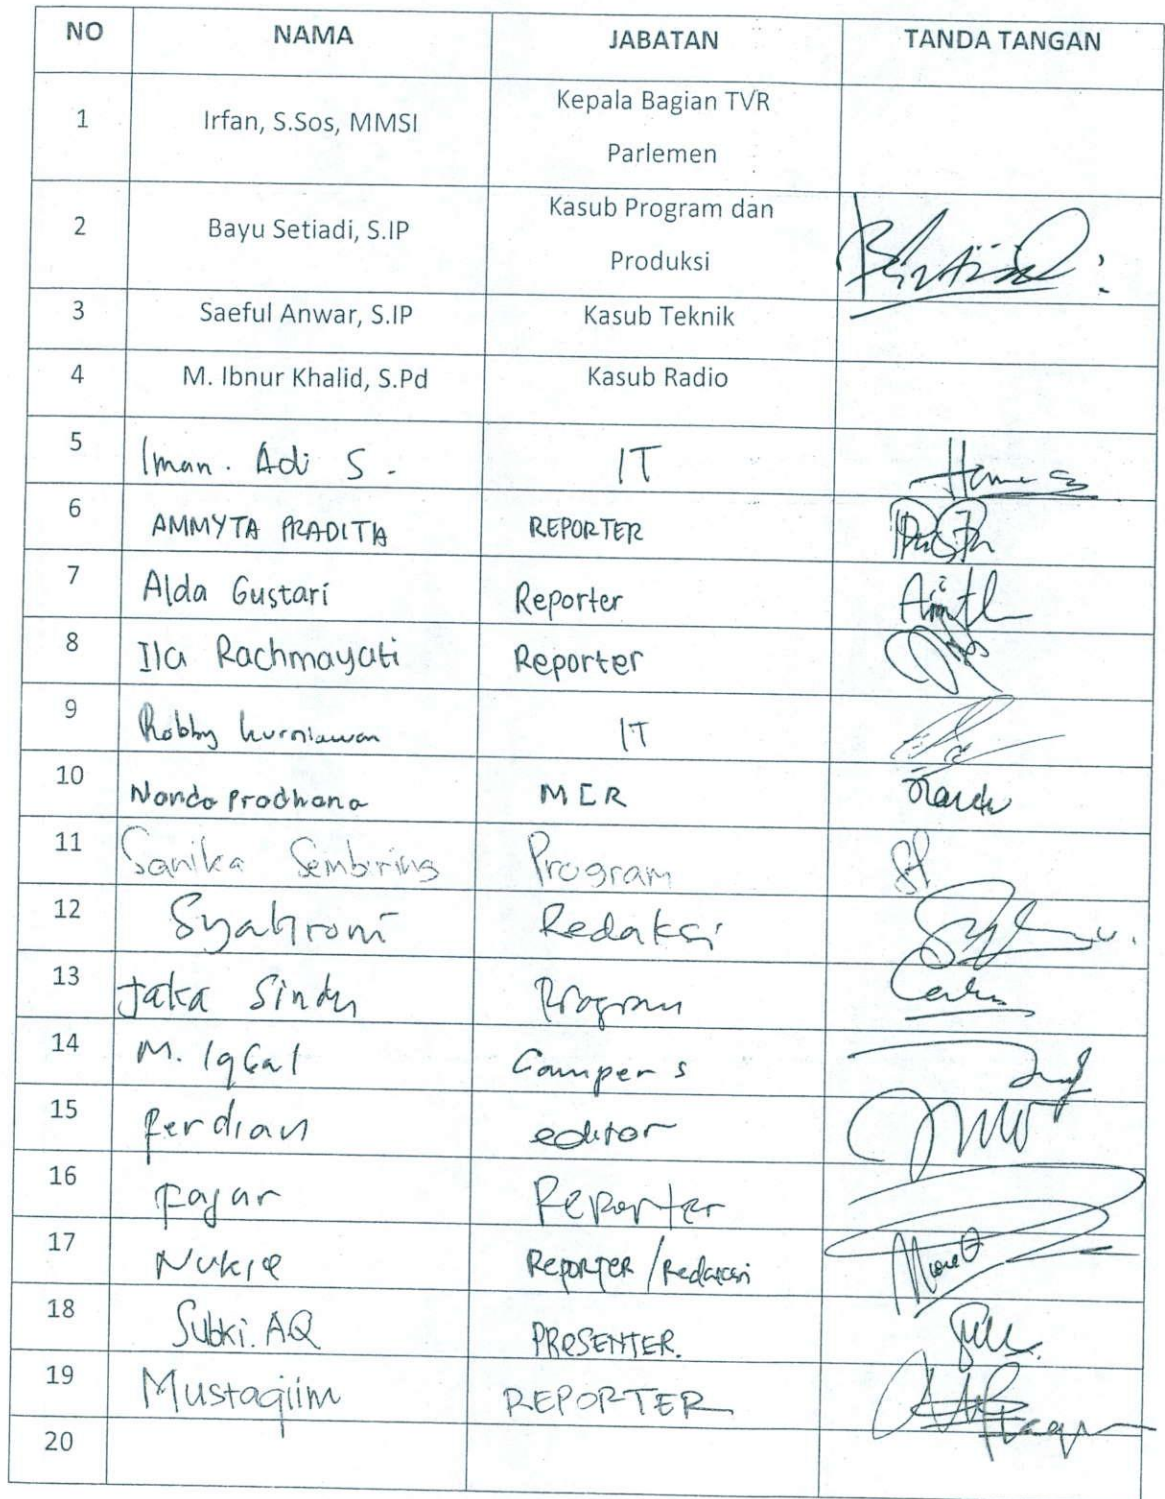 NO NAMA JABATAN TANDA TANGAN
1 Irfan, S.Sos, MMSI Kepala Bagian TVR
Parlemen
2 Bayu Setiadi, S.IP Kasub Program dan
Produksi
3 Saeful Anwar, S.IP Kasub Teknik
4 M. Ibnur Khalid, S.Pd Kasub Radio
5 Iman. Adi S. IT
6 AMMYTA PRADITA REPORTER
7 Alda Gustari Reporter
8 Ila Rachmayati Reporter
9 Robby kurniawan IT
10 Nanda Pradhana MCR
11 Sanika Sembiring Program
12 Syahroni Redaksi
13 Jaka Sindu Program
14 M. Iqbal Campers
15 ferdian editor
16 Fajar Reporter
17 Nukie Reporter/Redaksi
18 Subki.AQ PRESENTER.
19 Mustaqiim REPORTER
20